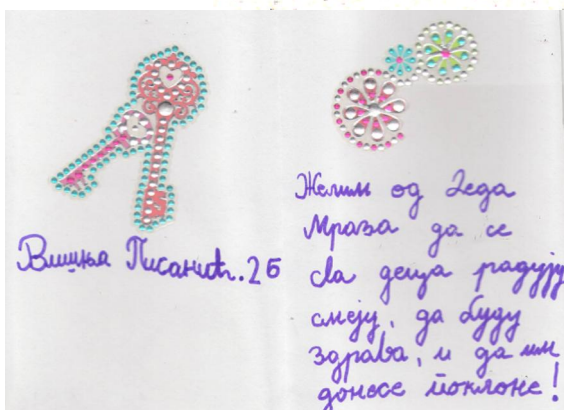 Вишња Писанић. 2б
Желим од Деда
Мраза да се
сва деца радују
смеју, да буду
здрава, и да им
донесе поклоне!